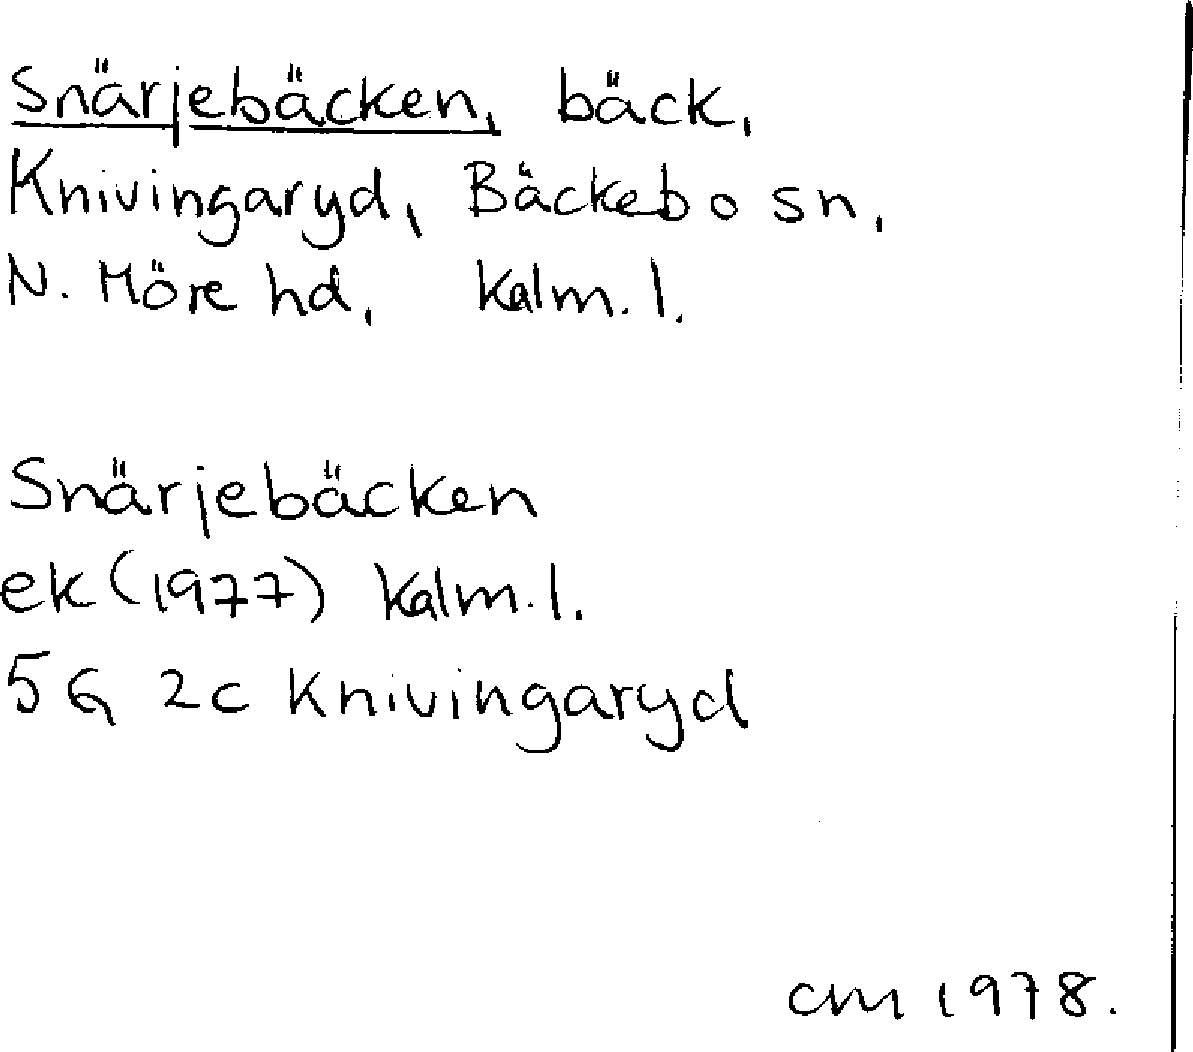 Snärjebäcken, bäck,
Knivingaryd, Bäckebo sn,
N. Möre hd, Kalm. l.
Snärjebäcken
ek (1977) Kalm. l.
5G 2c Knivingaryd
CM 1978.